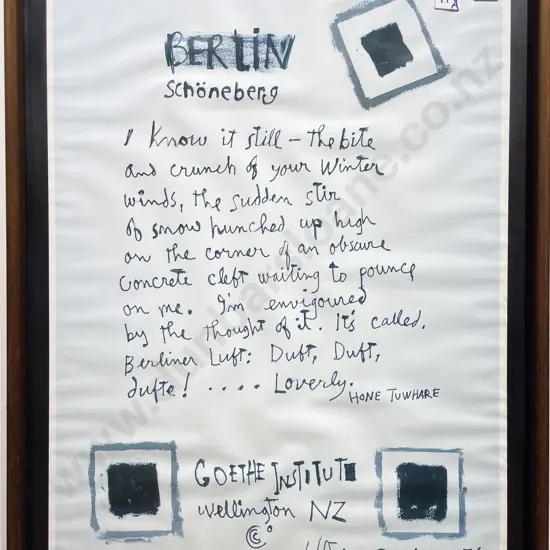 BERLIN
Schöneberg
I know it still – the bite
and crunch of your Winter
winds, the sudden stir
of snow hunched up high
on the corner of an obscure
concrete cleft waiting to pounce
on me. I'm envigoured
by the thought of it. It's called.
Berliner Luft: Duft, Duft,
dufte! .... Loverly.
HONE TUWHARE
GOETHE INSTITUTE
Wellington NZ